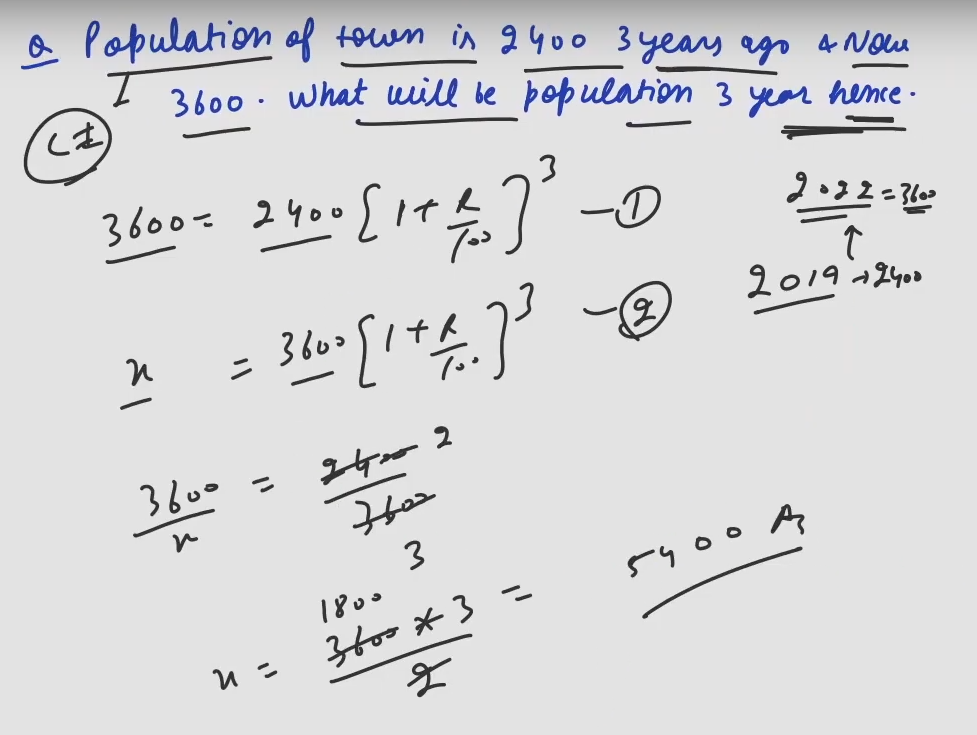 Q Population of town is 2400 3 years ago & Now
3600. What will be population 3 year hence.
CI
3600 = 2400 [1 + R/100]³ — ①
2022 = 3600
2019 → 2400
x = 3600 [1 + R/100]³ — ②
3600/x = 2400/3600 2 3
x = 3600 * 3 / 2 1800 = 5400 As